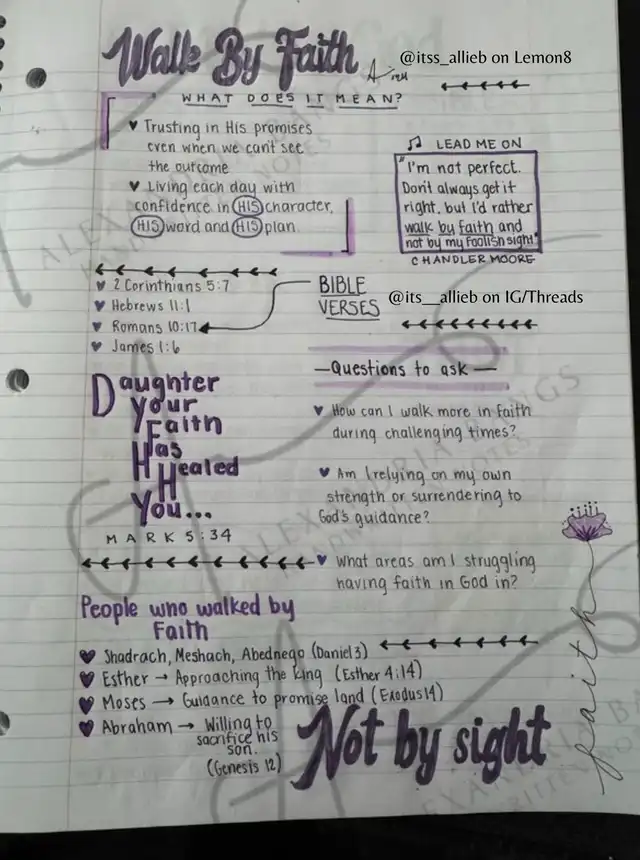 Walk By Faith
@itss_allieb on Lemon8
WHAT DOES IT MEAN?
♥ Trusting in His promises
even when we can't see
the outcome
♥ Living each day with
confidence in HIS character,
HIS word and HIS plan
♫ LEAD ME ON
"I'm not perfect.
Don't always get it
right, but I'd rather
walk by faith and
not by my foolish sight"
CHANDLER MOORE
♥ 2 Corinthians 5:7
♥ Hebrews 11:1
♥ Romans 10:17
♥ James 1:6
BIBLE
VERSES
@its__allieb on IG/Threads
Daughter
Your
Faith
Has
Healed
You...
MARK 5:34
—Questions to ask—
♥ How can I walk more in faith
during challenging times?
♥ Am I relying on my own
strength or surrendering to
God's guidance?
♥ What areas am I struggling
having faith in God in?
People who walked by
Faith
♥ Shadrach, Meshach, Abednego (Daniel 3)
♥ Esther → Approaching the king (Esther 4:14)
♥ Moses → Guidance to promise land (Exodus 14)
♥ Abraham → Willing to
sacrifice his
son.
(Genesis 12)
Not by sight
faith